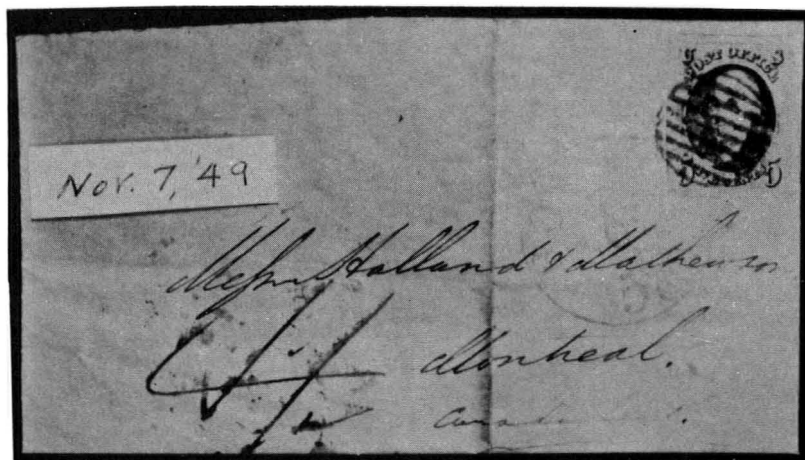 POST OFFICE
5 5
Nov. 7, '49
Messrs Holland & Mathewson
Montreal.